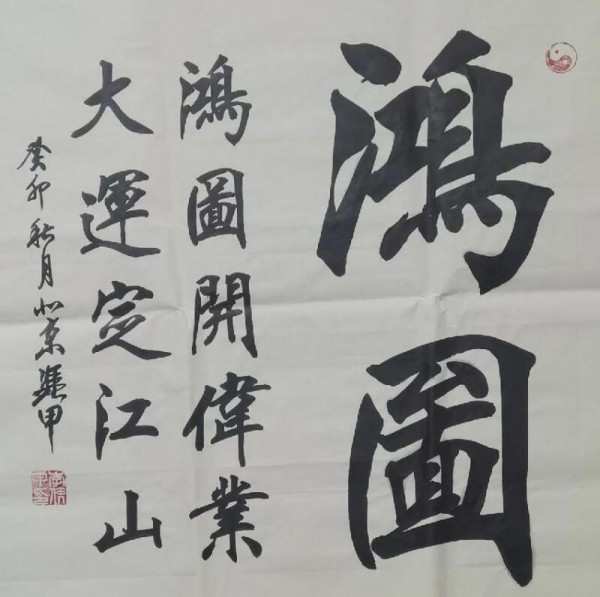 鴻圖
鴻圖開偉業
大運定江山
癸卯秋月北京